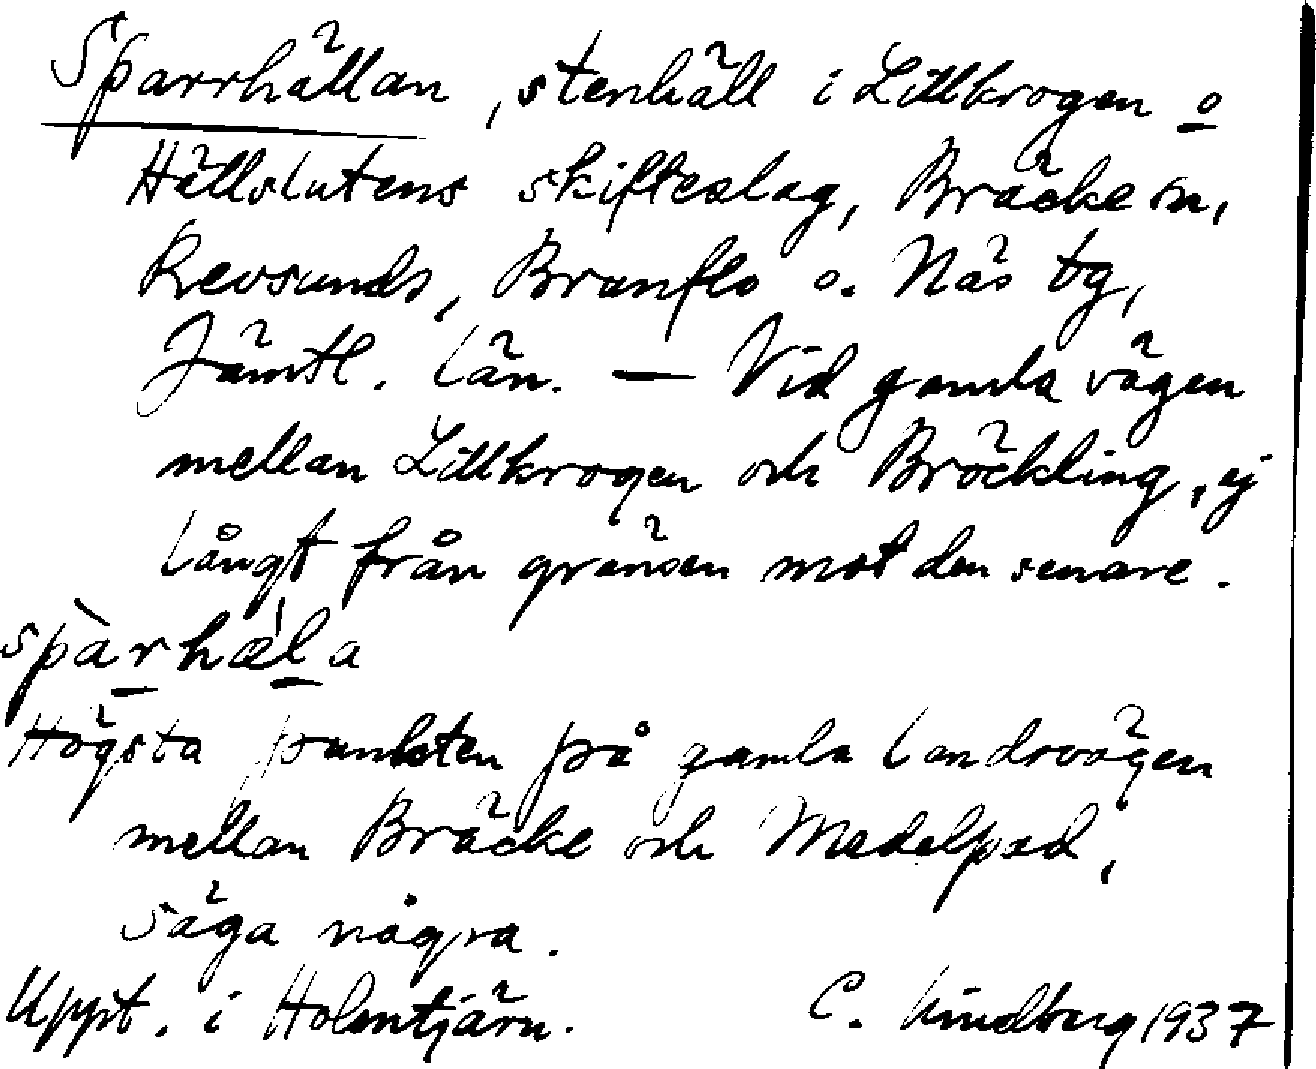 Sparrhällan, stenhäll i Lillkrogen o
Hällslutens skifteslag, Bräcke sn,
Revsunds, Brunflo o. Näs tg,
Jämtl. län. — Vid gamla vägen
mellan Lillkrogen och Bräckling, ej
långt från gränsen mot den senare.
spàrhæ̀la
Högsta punkten på gamla landsvägen
mellan Bräcke och Medelpad,
säga några.
Uppt. i Holmtjärn. C. Lindberg 1937